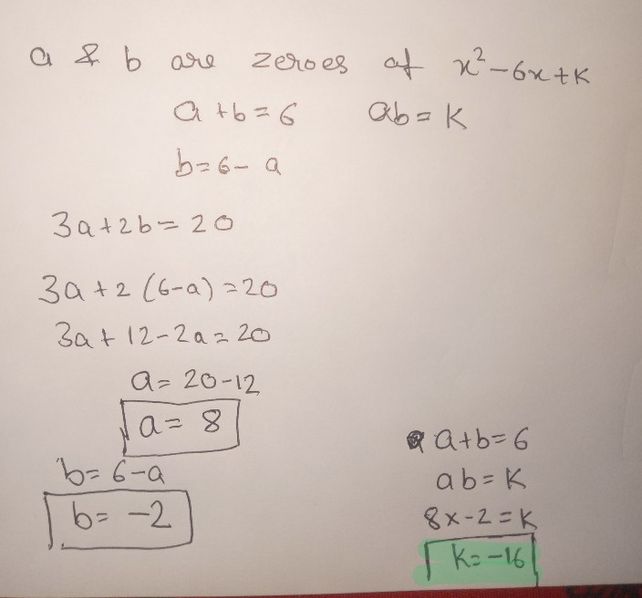 a & b are zeroes of x²-6x+K
a+b=6 ab=K
b=6-a
3a+2b=20
3a+2(6-a)=20
3a+12-2a=20
a=20-12
a=8
b=6-a
b=-2
a+b=6
ab=K
8x-2=K
K=-16